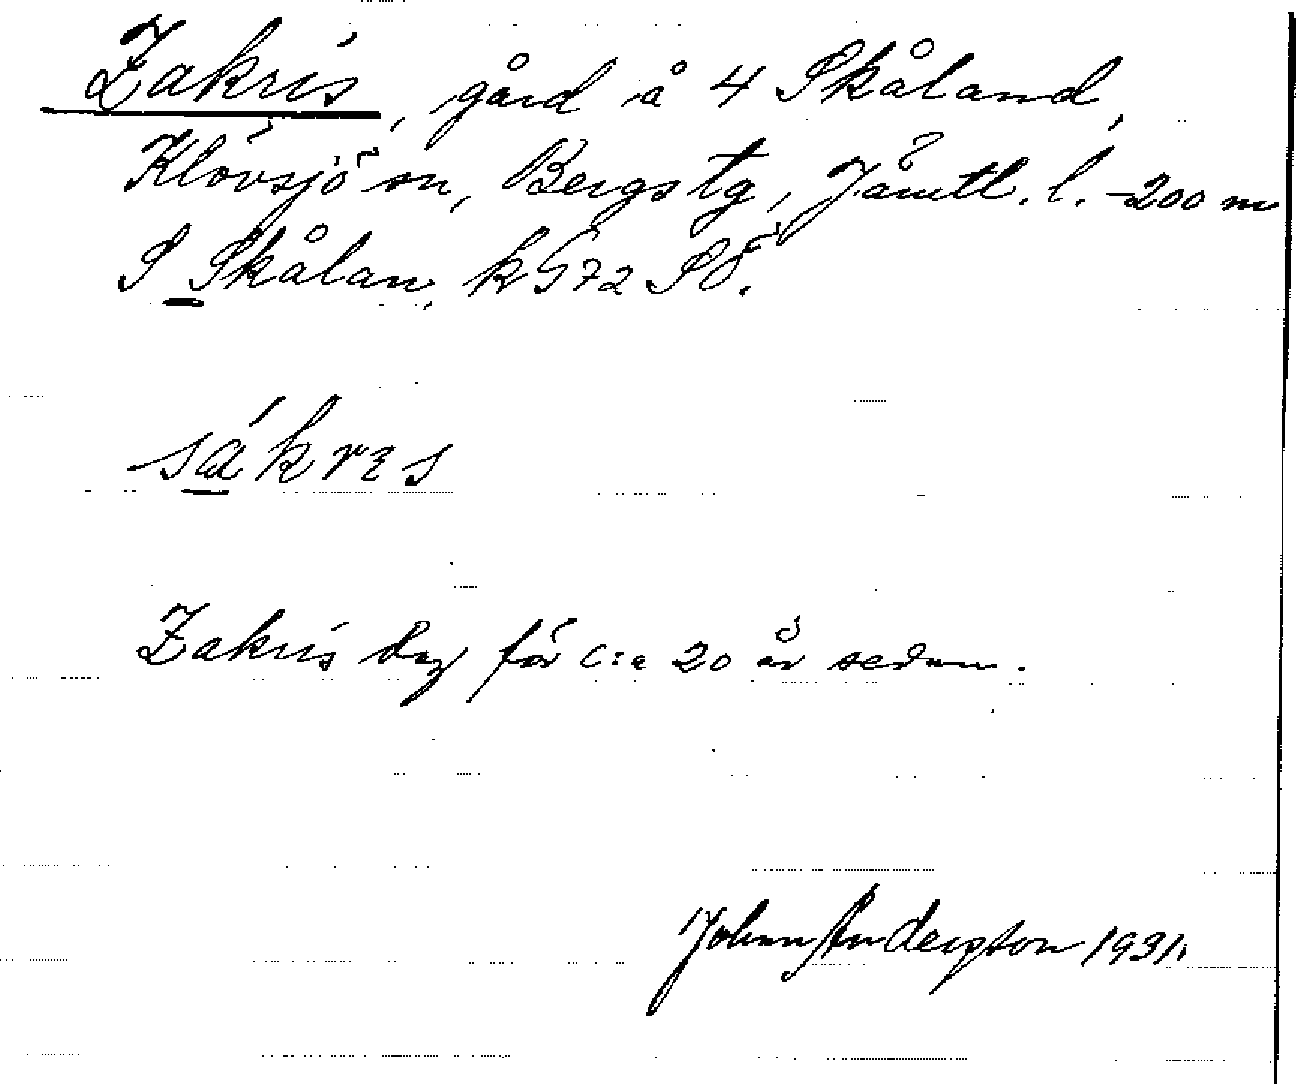 Zakris, gård å 4 Skåland,
Klövsjö sn, Bergs tg, Jämtl. l. -200 m
S Skålan, k G72 SÖ.
sákrεs
Zakris dog för c:a 20 år sedan.
Johan Andersson 1931.